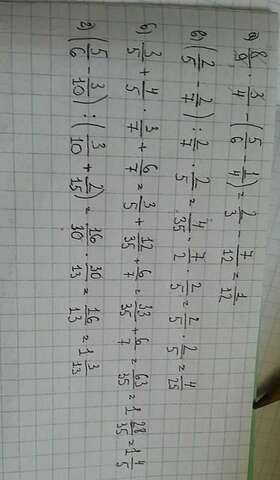 а) 8/9 · 3/4 - (5/6 - 1/4) = 2/3 - 7/12 = 1/12
в) (2/5 - 2/7) : 2/7 · 2/5 = 4/35 · 7/2 · 2/5 = 2/5 · 2/5 = 4/25
б) 3/5 + 4/5 · 3/7 + 6/7 = 3/5 + 12/35 + 6/7 = 33/35 + 6/7 = 63/35 = 1 28/35 = 1 4/5
г) (5/6 - 3/10) : (3/10 + 2/15) = 16/30 · 30/13 = 16/13 = 1 3/13